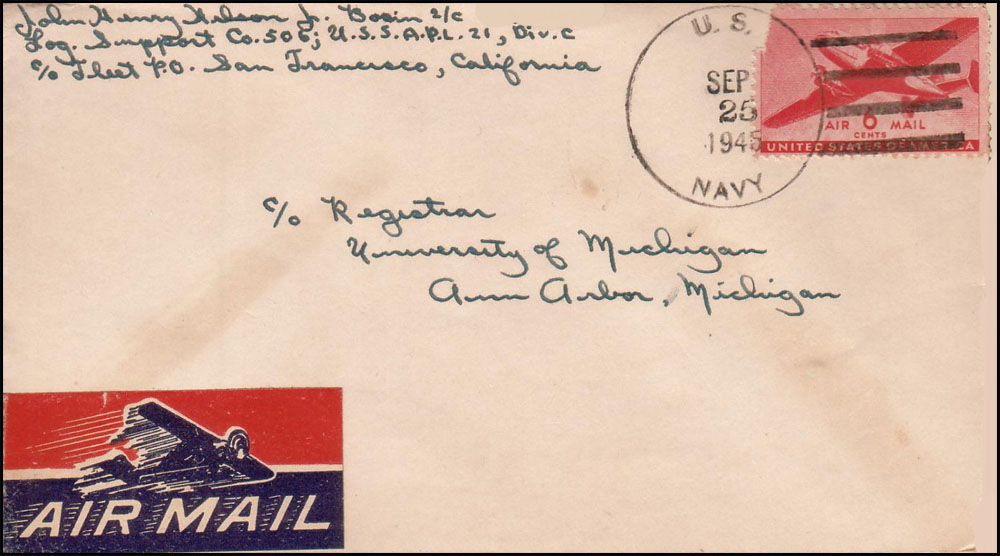 John Henry Nelson Jr. Bosin 2/c
Log. Support Co. 505; U.S.S. A.P.L. 21, Div. C
c/o Fleet P.O. San Francisco, California
U. S.
SEP
25
1945
NAVY
AIR 6 MAIL
CENTS
UNITED STATES OF AMERICA
c/o Registrar
University of Michigan
Ann Arbor, Michigan
AIR MAIL